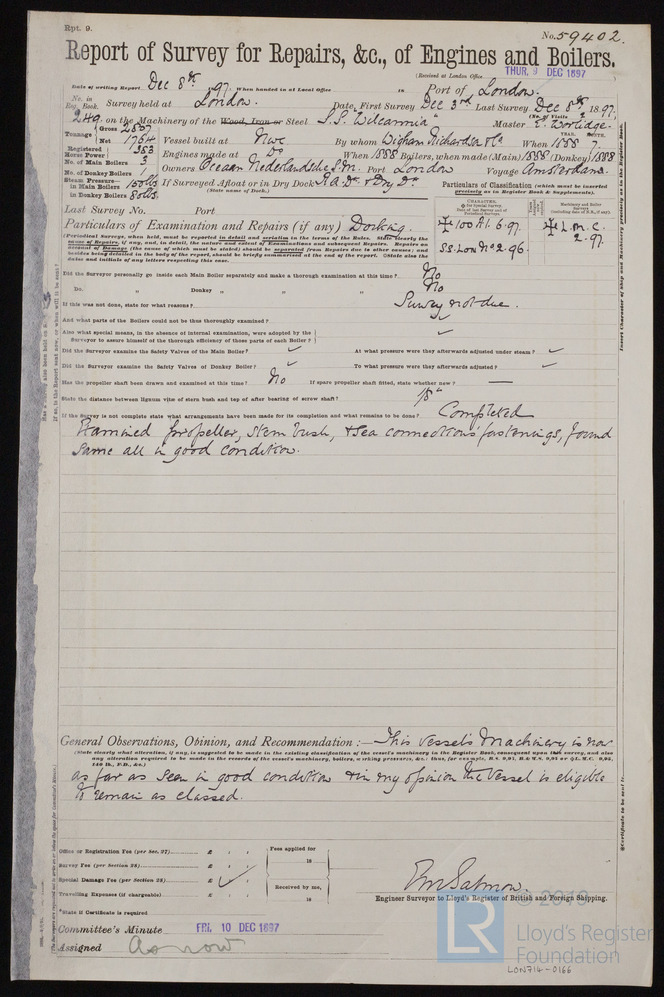 Rpt. 9.
No. 59402.
Report of Survey for Repairs, &c., of Engines and Boilers.
(Received at London Office THUR, 9 DEC 1897
Date of writing Report Dec 8th 97. When handed in at Local Office 18 Port of London.
No. in Reg. Book. Survey held at London. Date, First Survey Dec 3rd Last Survey Dec 8th 1897
249 on the Machinery of the Wood, Iron or Steel S.S. "Wilcannia" Master E. Worledge.
Tonnage Gross 2857 Net 1754 Vessel built at Nwc By whom Wigham Richardson & Co When 1888 7.
Registered Horse Power 353 Engines made at Do When 1888 Boilers, when made (Main) 1888 (Donkey) 1888
No. of Main Boilers 3 Owners Port London Voyage Amsterdam.
No. of Donkey Boilers
Steam Pressure— in Main Boilers 150 lbs If Surveyed Afloat or in Dry Dock
in Donkey Boilers 80 lbs. (State name of Dock.)
Particulars of Classification (which must be inserted precisely as in Register Book & Supplements).
Last Survey No. Port
Particulars of Examination and Repairs (if any) Docking.
100 A1. 6.97.
S.S. Lon No 2. 96.
L.M.C. 2.97.
Did the Surveyor personally go inside each Main Boiler separately and make a thorough examination at this time? No
Do. " Donkey " " " No
If this was not done, state for what reasons? Survey not due.
And what parts of the Boilers could not be thus thoroughly examined?
Also what special means, in the absence of internal examination, were adopted by the Surveyor to assure himself of the thorough efficiency of those parts of each Boiler?
Did the Surveyor examine the Safety Valves of the Main Boiler? At what pressure were they afterwards adjusted under steam?
Did the Surveyor examine the Safety Valves of Donkey Boiler? To what pressure were they afterwards adjusted?
Has the propeller shaft been drawn and examined at this time? No If spare propeller shaft fitted, state whether new? —
State the distance between lignum vitæ of stern bush and top of after bearing of screw shaft?
If the Survey is not complete state what arrangements have been made for its completion and what remains to be done? Completed
Examined propeller, stern bush, & sea connections fastenings, found
same all in good condition.
General Observations, Opinion, and Recommendation:— This Vessel's Machinery is now
(State clearly what alteration, if any, is suggested to be made in the existing classification of the vessel's machinery in the Register Book, consequent upon this survey, and also
any alteration required to be made in the records of the vessel's machinery, boilers, working pressures, &c.; thus, for example, B.S. 9,95, B.&M.S. 9,95 or L.M.C. 9,95,
140 lb., F.D., &c.)
as far as seen in good condition & in my opinion the Vessel is eligible
to remain as classed.
Office or Registration Fee (per Sec. 27) £ Fees applied for
Survey Fee (per Section 28) £ 18
Special Damage Fee (per Section 28) £ Received by me,
Travelling Expenses (if chargeable) £ 18
Engineer Surveyor to Lloyd's Register of British and Foreign Shipping.
*State if Certificate is required
Committee's Minute FRI, 10 DEC 1897
Assigned As now
© 2019
LR
Lloyd's Register
Foundation
LON714-0166